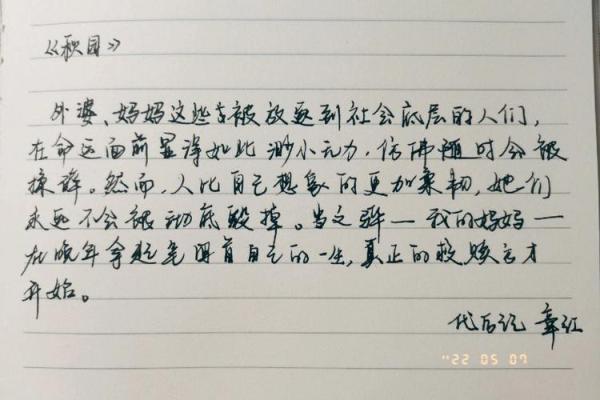 《秋园》
外婆、妈妈这些被放逐到社会底层的人们，
在命运面前显得如此渺小无力，仿佛随时会被
揉碎。然而，人比自己想象的更加柔韧，她们
永远不会被彻底毁掉。当之骅—我的妈妈—
在晚年拿起笔回首自己的一生，真正的救赎方才
开始。
代后记 章红
'22 05 07